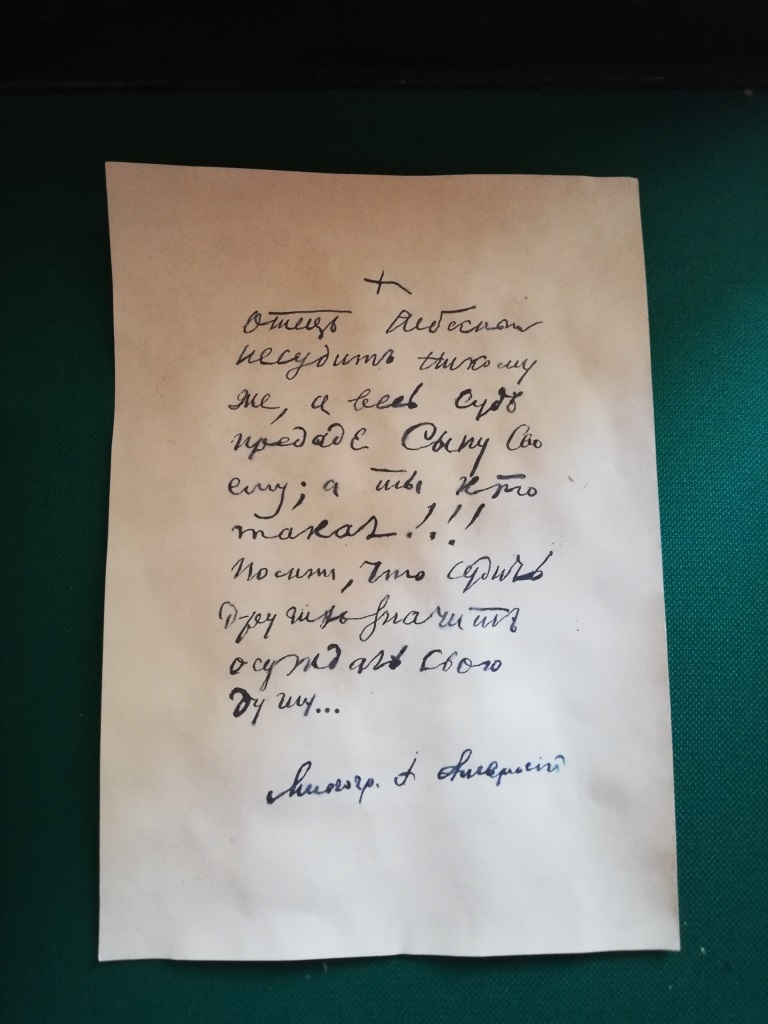 Отецъ Небесный
несудитъ никому
же, а весь судъ
предаде Сыну Сво
ему; а ты кто
такая!!!
помни, что судить
другихъ значитъ
осуждать свою
душу...
Многогр. І. Амвросій